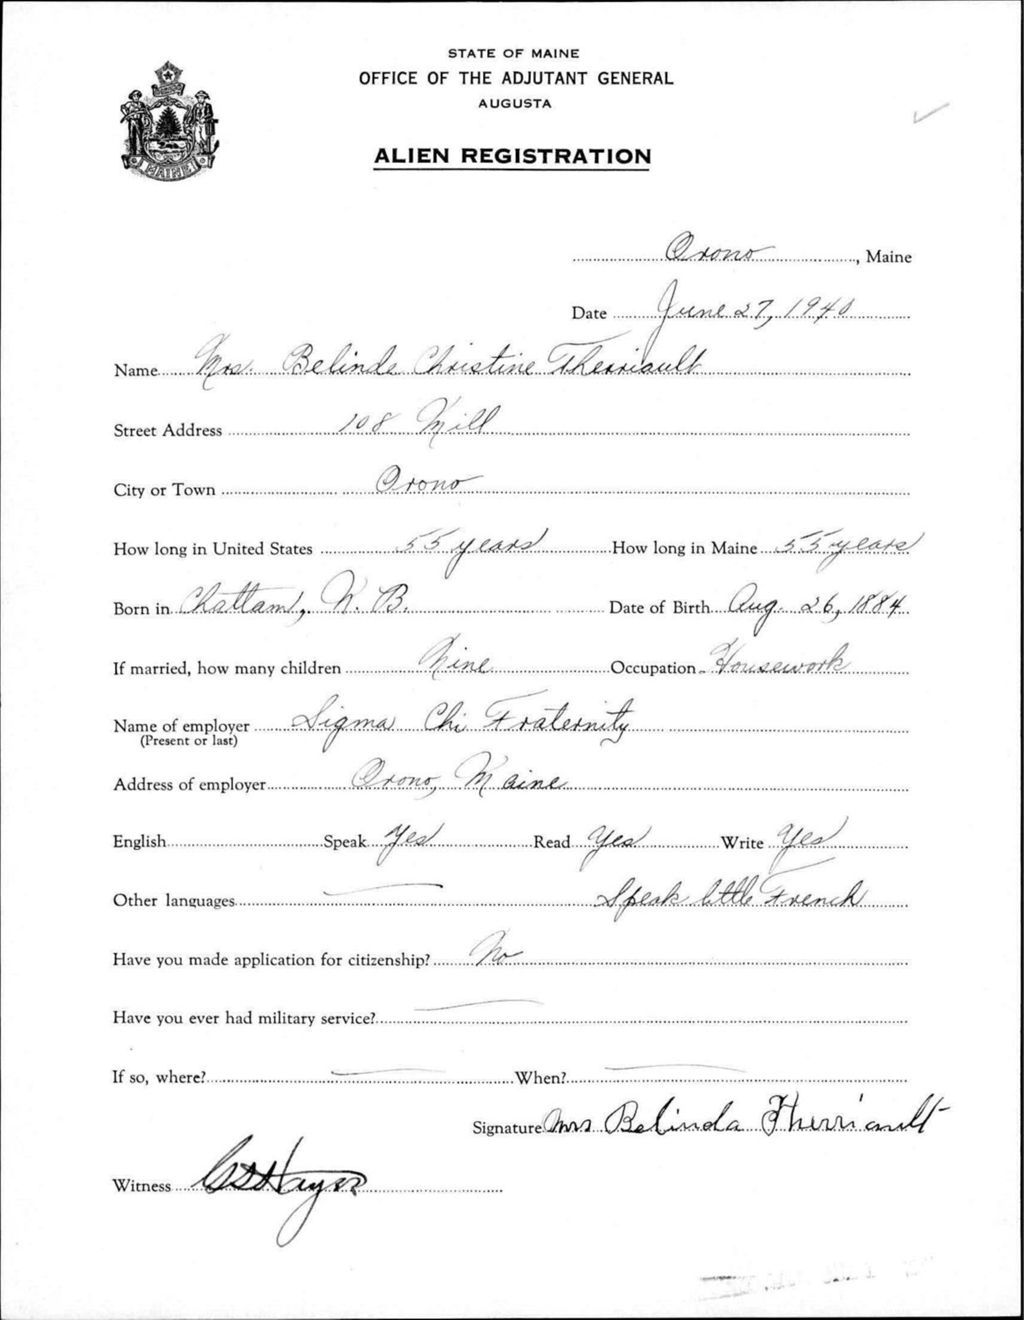 STATE OF MAINE
OFFICE OF THE ADJUTANT GENERAL
AUGUSTA
ALIEN REGISTRATION
MAINE
Orono, Maine
Date June 27, 1940
Name Mrs. Belinde Christine Therriault
Street Address 108 Mill
City or Town Orono
How long in United States 55 years How long in Maine 55 years
Born in Chattam, N. B. Date of Birth Aug. 26, 1884
If married, how many children Nine Occupation Housework
Name of employer Sigma Chi Fraternity
(Present or last)
Address of employer Orono, Maine
English Speak Yes Read Yes Write Yes
Other languages Speak little French
Have you made application for citizenship? No
Have you ever had military service?
If so, where? When?
Signature Mrs Belinda Therriault
Witness